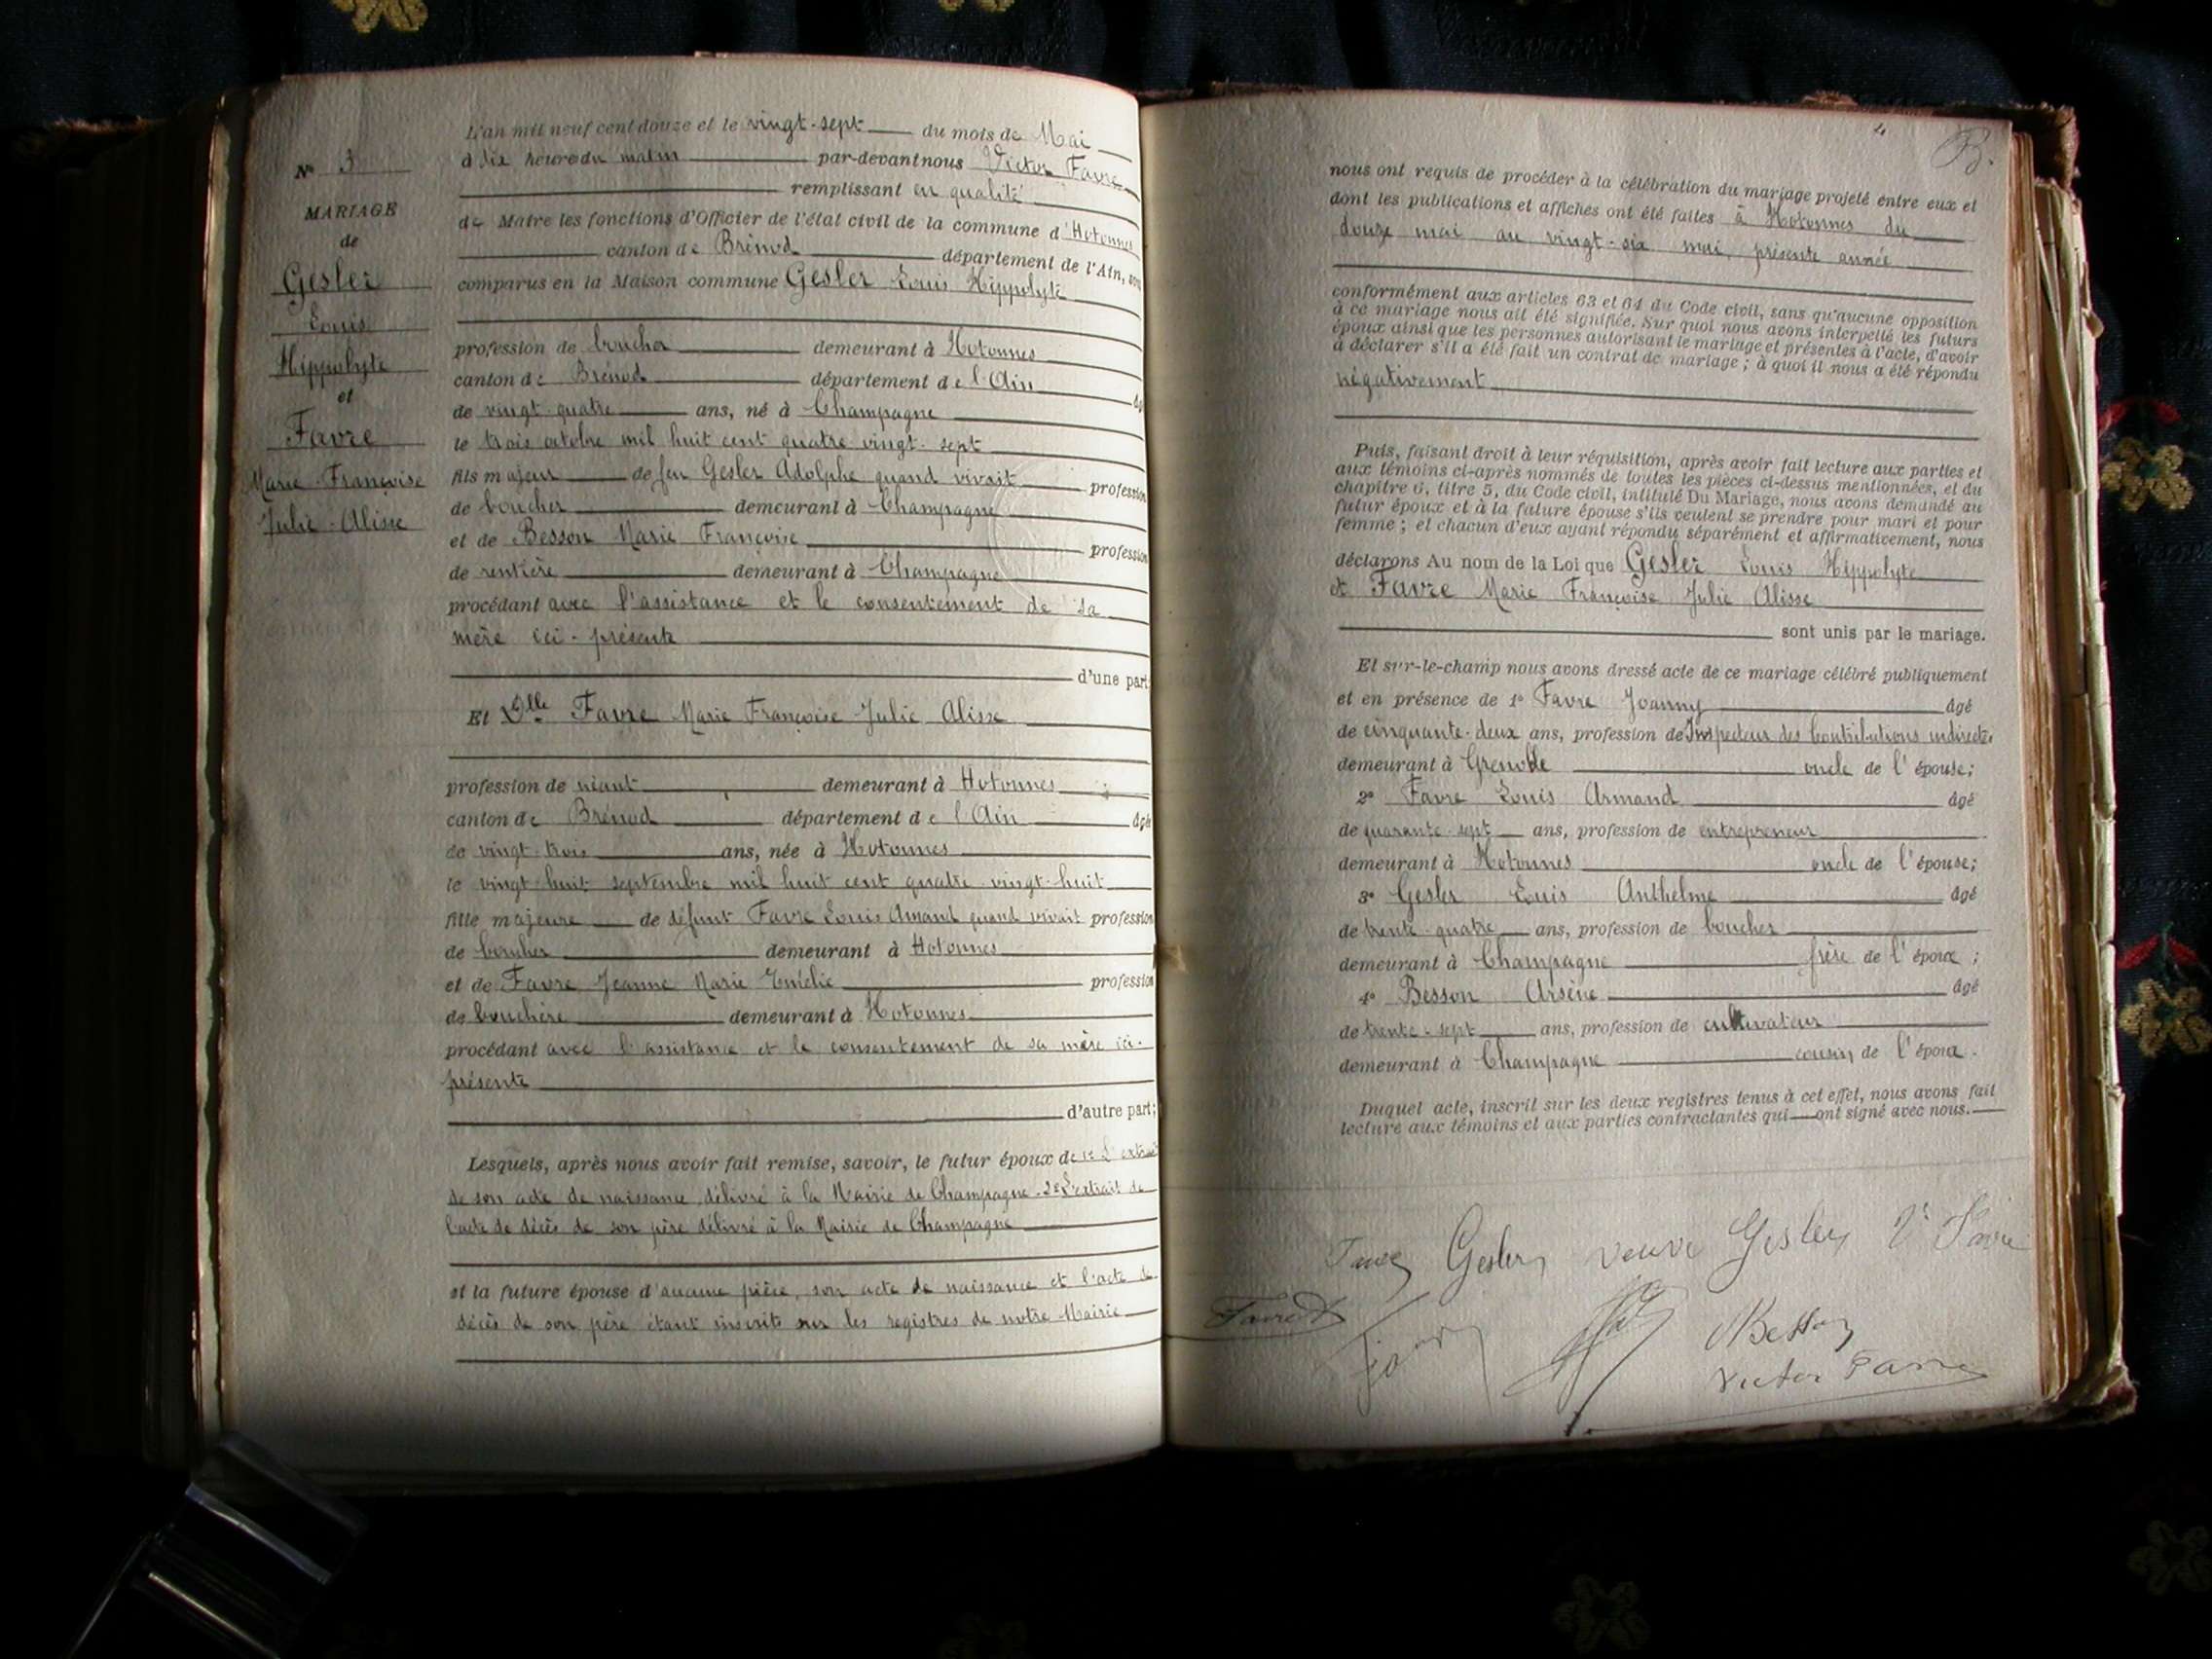 N° 3
MARIAGE
de
Gesler
Louis
Hippolyte
et
Favre
Marie Françoise
Julie Alisse
L'an mil neuf cent douze et le vingt-sept du mois de Mai
à dix heure du matin par-devant nous Victor Favre
remplissant en qualité
de Maire les fonctions d'Officier de l'état civil de la commune d'Hotonnes
canton de Brénod département de l'Ain, sont
comparus en la Maison commune Gesler Louis Hippolyte
profession de boucher demeurant à Hotonnes
canton de Brénod département de l'Ain âgé
de vingt-quatre ans, né à Champagne
le trois octobre mil huit cent quatre-vingt-sept
fils majeur de feu Gesler Adolphe quand vivait profession
de boucher demeurant à Champagne
et de Besson Marie Françoise profession
de rentière demeurant à Champagne
procédant avec l'assistance et le consentement de sa
mère ici-présente
d'une part;
Et Dlle Favre Marie Françoise Julie Alisse
profession de néant demeurant à Hotonnes
canton de Brénod département de l'Ain âgée
de vingt-trois ans, née à Hotonnes
le vingt-huit septembre mil huit cent quatre-vingt-huit
fille majeure de défunt Favre Louis Amand quand vivait profession
de boucher demeurant à Hotonnes
et de Favre Jeanne Marie Emélie profession
de bouchère demeurant à Hotonnes
procédant avec l'assistance et le consentement de sa mère ici-
présente
d'autre part;
Lesquels, après nous avoir fait remise, savoir, le futur époux de 1° L'extrait
de son acte de naissance délivré à la Mairie de Champagne - 2° L'extrait de
l'acte de décès de son père délivré à la Mairie de Champagne
et la future épouse d'aucune pièce, son acte de naissance et l'acte de
décès de son père étant inscrits sur les registres de notre Mairie
nous ont requis de procéder à la célébration du mariage projeté entre eux et
dont les publications et affiches ont été faites à Hotonnes du
douze mai au vingt-six mai, présente année
conformément aux articles 63 et 64 du Code civil, sans qu'aucune opposition
à ce mariage nous ait été signifiée. Sur quoi nous avons interpellé les futurs
époux ainsi que les personnes autorisant le mariage et présentes à l'acte, d'avoir
à déclarer s'il a été fait un contrat de mariage; à quoi il nous a été répondu
négativement
Puis, faisant droit à leur réquisition, après avoir fait lecture aux parties et
aux témoins ci-après nommés de toutes les pièces ci-dessus mentionnées, et du
chapitre 6, titre 5, du Code civil, intitulé Du Mariage, nous avons demandé au
futur époux et à la future épouse s'ils veulent se prendre pour mari et pour
femme; et chacun d'eux ayant répondu séparément et affirmativement, nous
déclarons Au nom de la Loi que Gesler Louis Hippolyte
et Favre Marie Françoise Julie Alisse
sont unis par le mariage.
Et sur-le-champ nous avons dressé acte de ce mariage célébré publiquement
et en présence de 1° Favre Joanny âgé
de cinquante-deux ans, profession de Inspecteur des Contributions indirectes
demeurant à Grenoble oncle de l'épouse;
2° Favre Louis Armand âgé
de quarante-sept ans, profession de entrepreneur
demeurant à Hotonnes oncle de l'épouse;
3° Gesler Louis Anthelme âgé
de trente-quatre ans, profession de boucher
demeurant à Champagne frère de l'époux;
4° Besson Arsène âgé
de trente-sept ans, profession de cultivateur
demeurant à Champagne cousin de l'époux.
Duquel acte, inscrit sur les deux registres tenus à cet effet, nous avons fait
lecture aux témoins et aux parties contractantes qui ont signé avec nous.
Gesler veuve Gesler Favre
Favre
Besson
Victor Favre